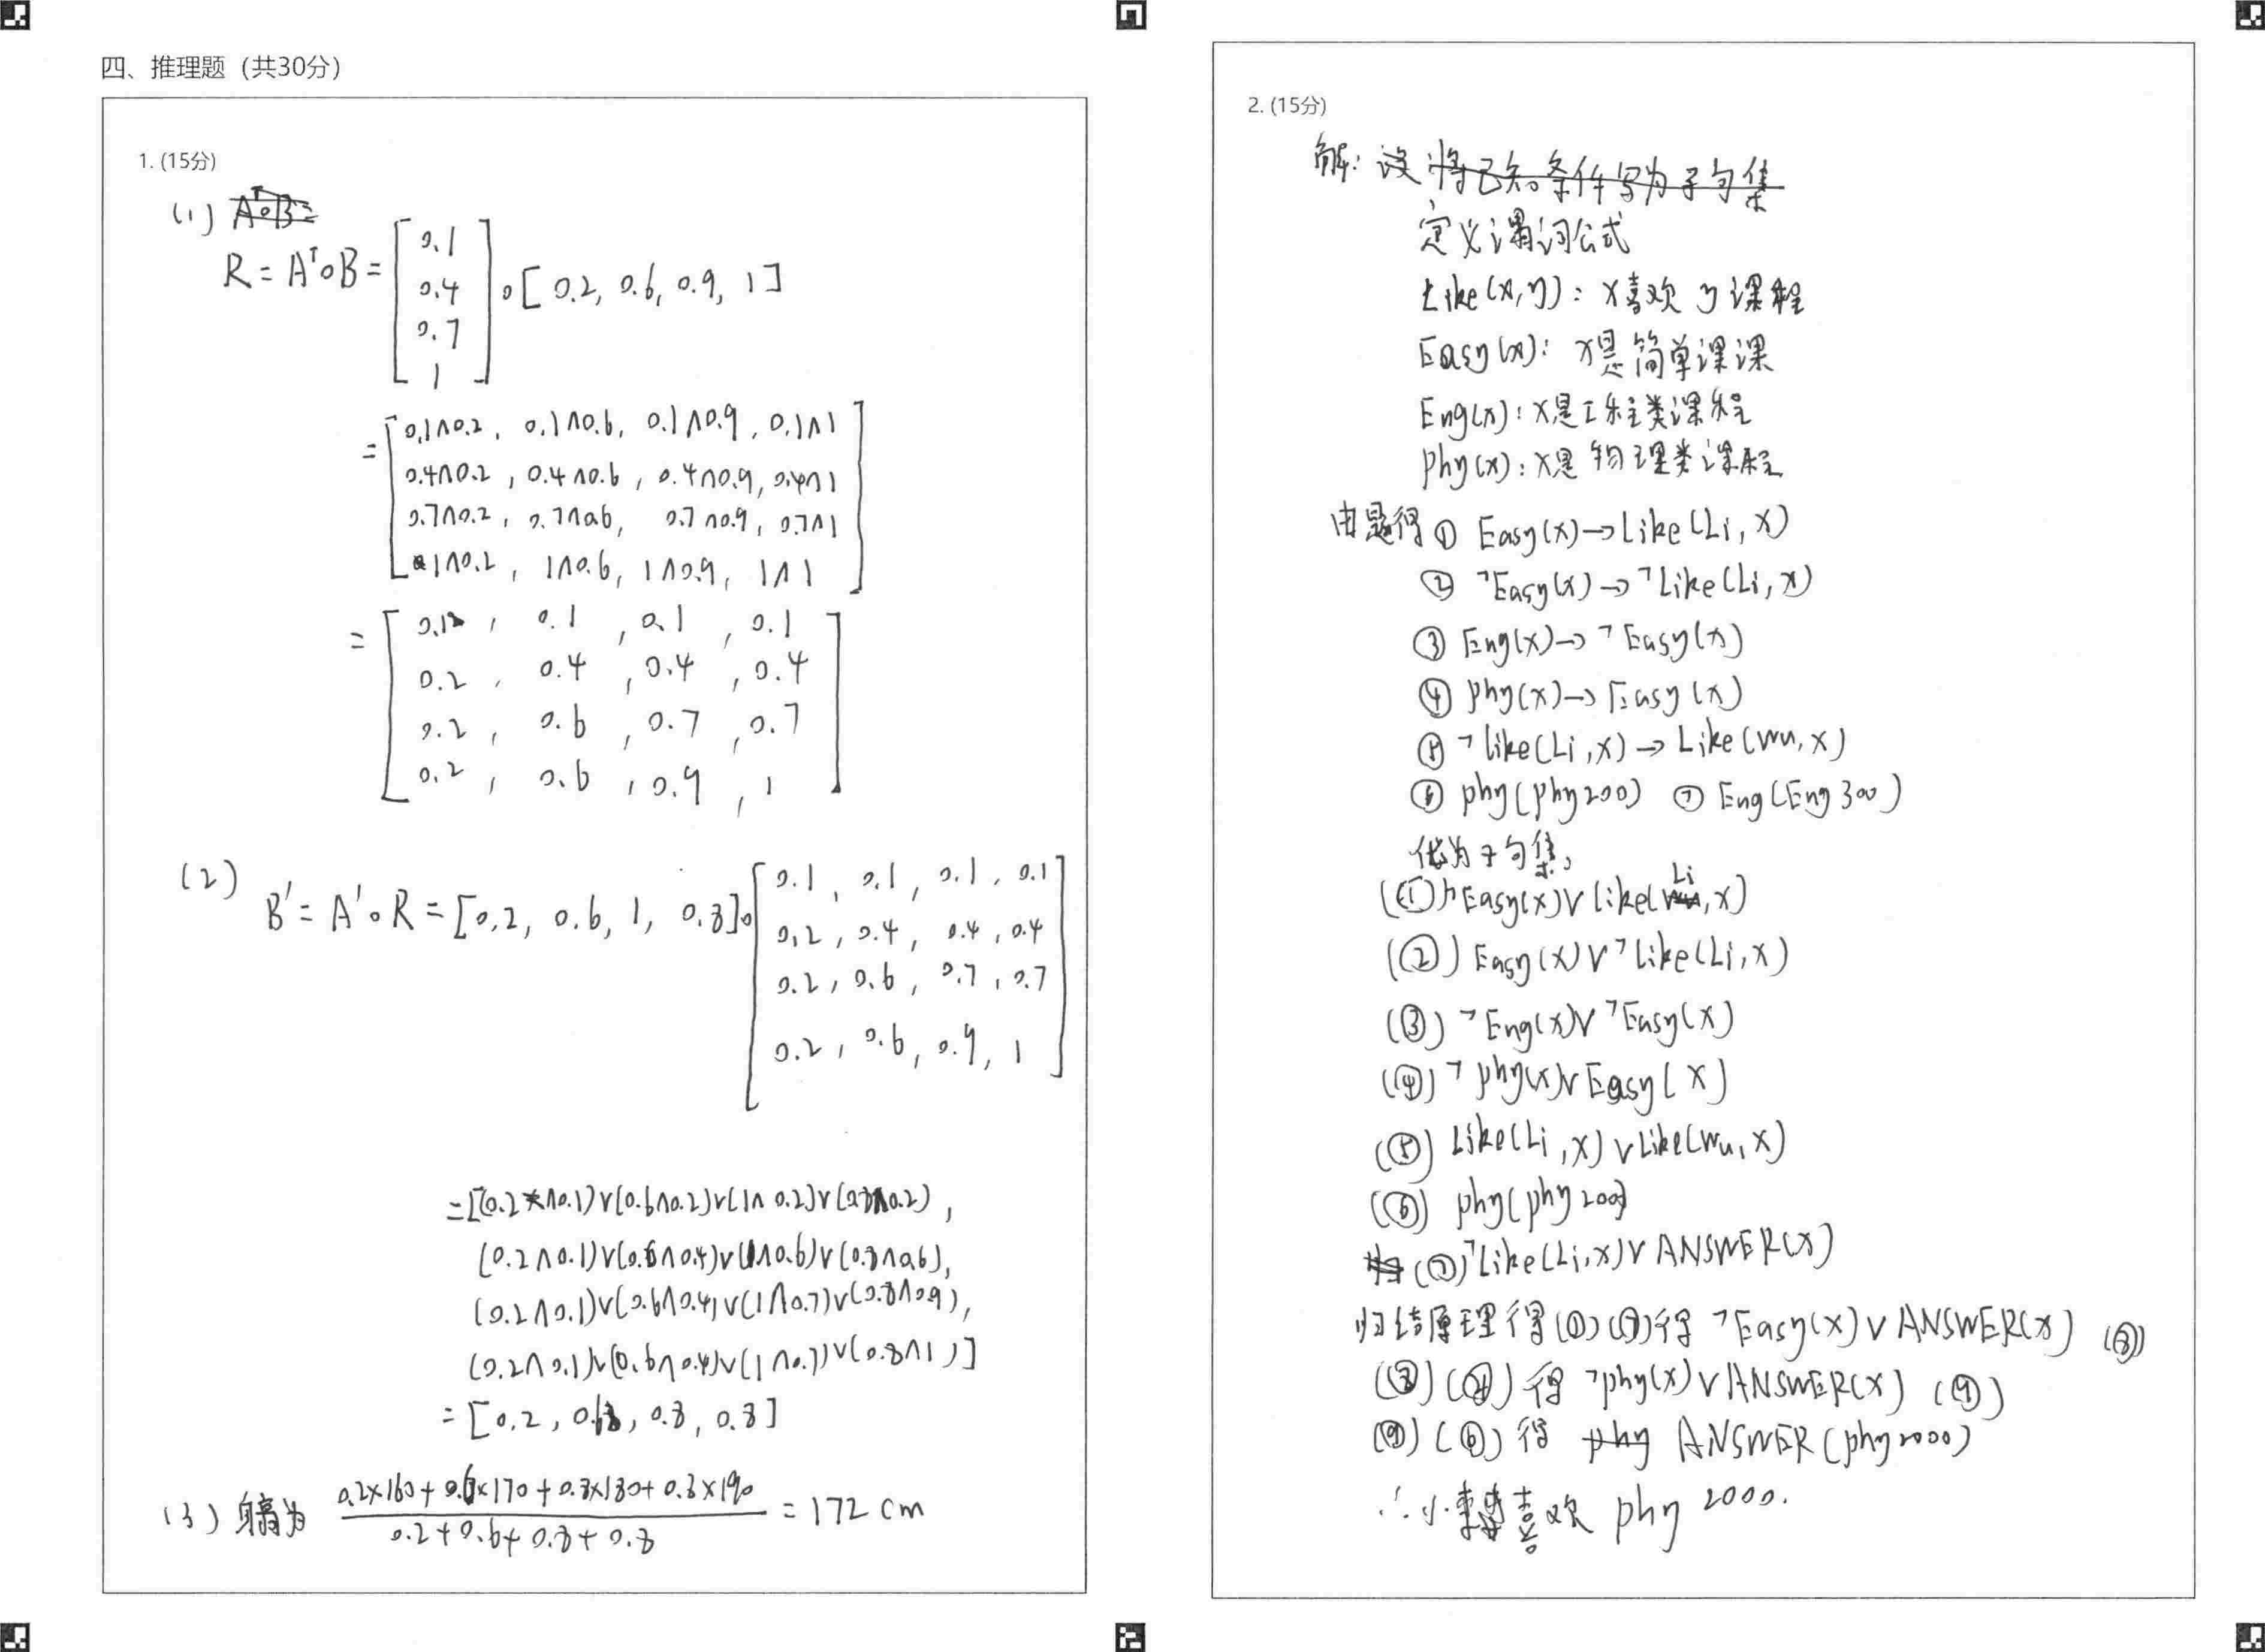 四、推理题（共30分）
1. (15分)
(1) A^T∘B=
R = A^T∘B = [0.1
0.4
0.7
1] ∘ [0.2, 0.6, 0.9, 1]
= [0.1∧0.2, 0.1∧0.6, 0.1∧0.9, 0.1∧1
0.4∧0.2, 0.4∧0.6, 0.4∧0.9, 0.4∧1
0.7∧0.2, 0.7∧0.6, 0.7∧0.9, 0.7∧1
1∧0.2, 1∧0.6, 1∧0.9, 1∧1]
= [0.1, 0.1, 0.1, 0.1
0.2, 0.4, 0.4, 0.4
0.2, 0.6, 0.7, 0.7
0.2, 0.6, 0.9, 1]
(2) B' = A'∘R = [0.2, 0.6, 1, 0.8]∘[0.1, 0.1, 0.1, 0.1
0.2, 0.4, 0.4, 0.4
0.2, 0.6, 0.7, 0.7
0.2, 0.6, 0.9, 1]
=[(0.2∧0.1)∨(0.6∧0.2)∨(1∧0.2)∨(0.8∧0.2),
(0.2∧0.1)∨(0.6∧0.4)∨(1∧0.6)∨(0.8∧0.6),
(0.2∧0.1)∨(0.6∧0.4)∨(1∧0.7)∨(0.8∧0.9),
(0.2∧0.1)∨(0.6∧0.4)∨(1∧0.7)∨(0.8∧1)]
= [0.2, 0.6, 0.8, 0.8]
(3) 身高为 (0.2×160+0.6×170+0.8×180+0.8×190)/(0.2+0.6+0.8+0.8) = 172 cm
2. (15分)
解: 设 将已知条件写为子句集
定义谓词公式
Like(x,y): x喜欢y课程
Easy(x): x是简单课课
Eng(x): x是工程类课程
phy(x): x是物理类课程
由题得 ① Easy(x)→Like(Li, x)
② ¬Easy(x)→¬Like(Li, x)
③ Eng(x)→¬Easy(x)
④ phy(x)→Easy(x)
⑤ ¬like(Li, x)→Like(Wu, x)
⑥ phy(phy200) ⑦ Eng(Eng300)
化为子句集,
(①)¬Easy(x)∨like(Li, x)
(②) Easy(x)∨¬like(Li, x)
(③) ¬Eng(x)∨¬Easy(x)
(④) ¬phy(x)∨Easy(x)
(⑤) Like(Li, x)∨Like(Wu, x)
(⑥) phy(phy200)
(⑦)¬Like(Li,x)∨ANSWER(x)
归结原理得(①)(⑦)得 ¬Easy(x)∨ANSWER(x) (⑧)
(⑧)(④)得 ¬phy(x)∨ANSWER(x) (⑨)
(⑨)(⑥)得 phy ANSWER(phy2000)
∴小李喜欢 phy 2000.